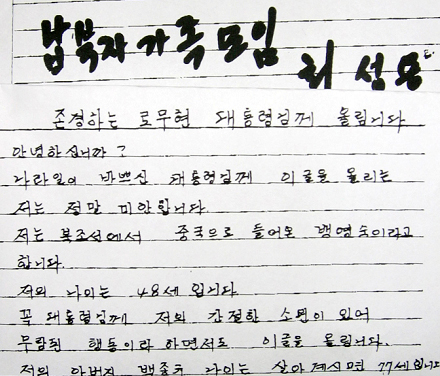 납북자 가족 모임
최 성 용
존경하는 로무현 대통령님께 올립니다
안녕하십니까 ?
나라일에 바쁘신 대통령님께 이글을 올리는
저는 정말 미안합니다.
저는 북조선에서 중국으로 들어온 백영숙이라고
합니다.
저의 나이는 48세 입니다
꼭 대통령님께 저의 간절한 소원이 있어
무람된 행동이라 하면서도 이글을 올립니다.
저의 아버지 백종규 나이는 살아 계시면 77세입니다